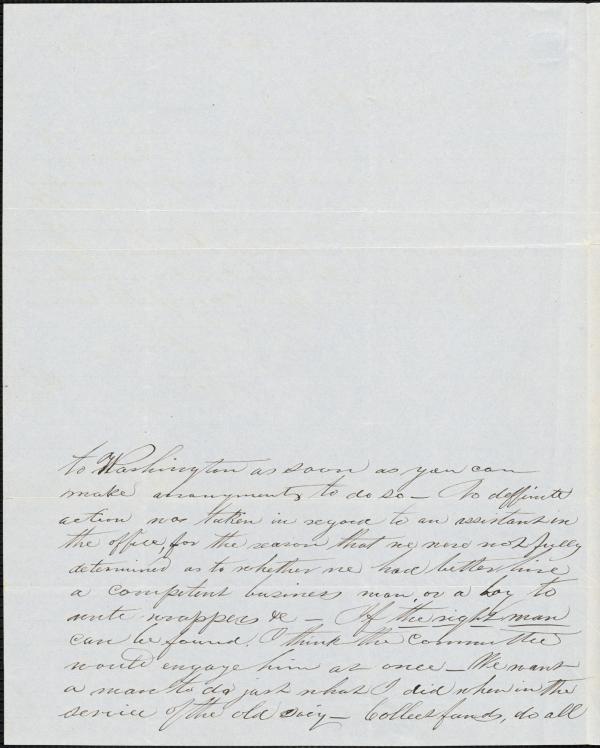 to Washington as soon as you can
make arrangments to do so — No deffinite
action was taken in regard to an assistant in
the office, for the reason that we were not fully
determined as to whether we had better hire
a competent business man, or a boy to
write wrappers &c — If the right man
can be found. I think the Committee
would engage him at once — We want
a man to do just what I did when in the
service of the old Soc'y — Collect funds, do all